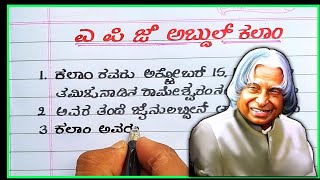 ಎ ಪಿ ಜೆ ಅಬ್ದುಲ್ ಕಲಾಂ
1. ಕಲಾಂ ರವರು ಅಕ್ಟೋಬರ್ 15,
ತಮಿಳುನಾಡಿನ ರಾಮೇಶ್ವರಂನ
2 ಅವರ ತಂದೆ ಜೈನುಲಬ್ದೀನ್
3 ಕಲಾಂ ಅವರು